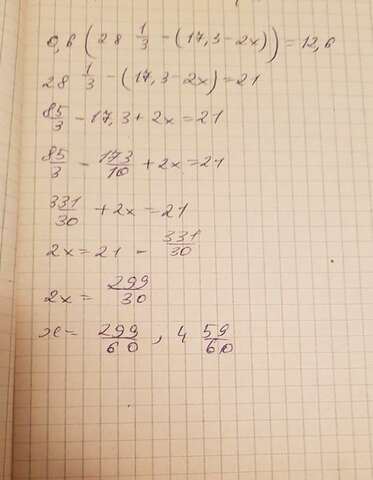 0,6(28 1/3 - (17,3-2x)) = 12,6
28 1/3 - (17,3-2x) = 21
85/3 - 17,3 + 2x = 21
85/3 - 173/10 + 2x = 21
331/30 + 2x = 21
2x = 21 - 331/30
2x = 299/30
x = 299/60 , 4 59/60